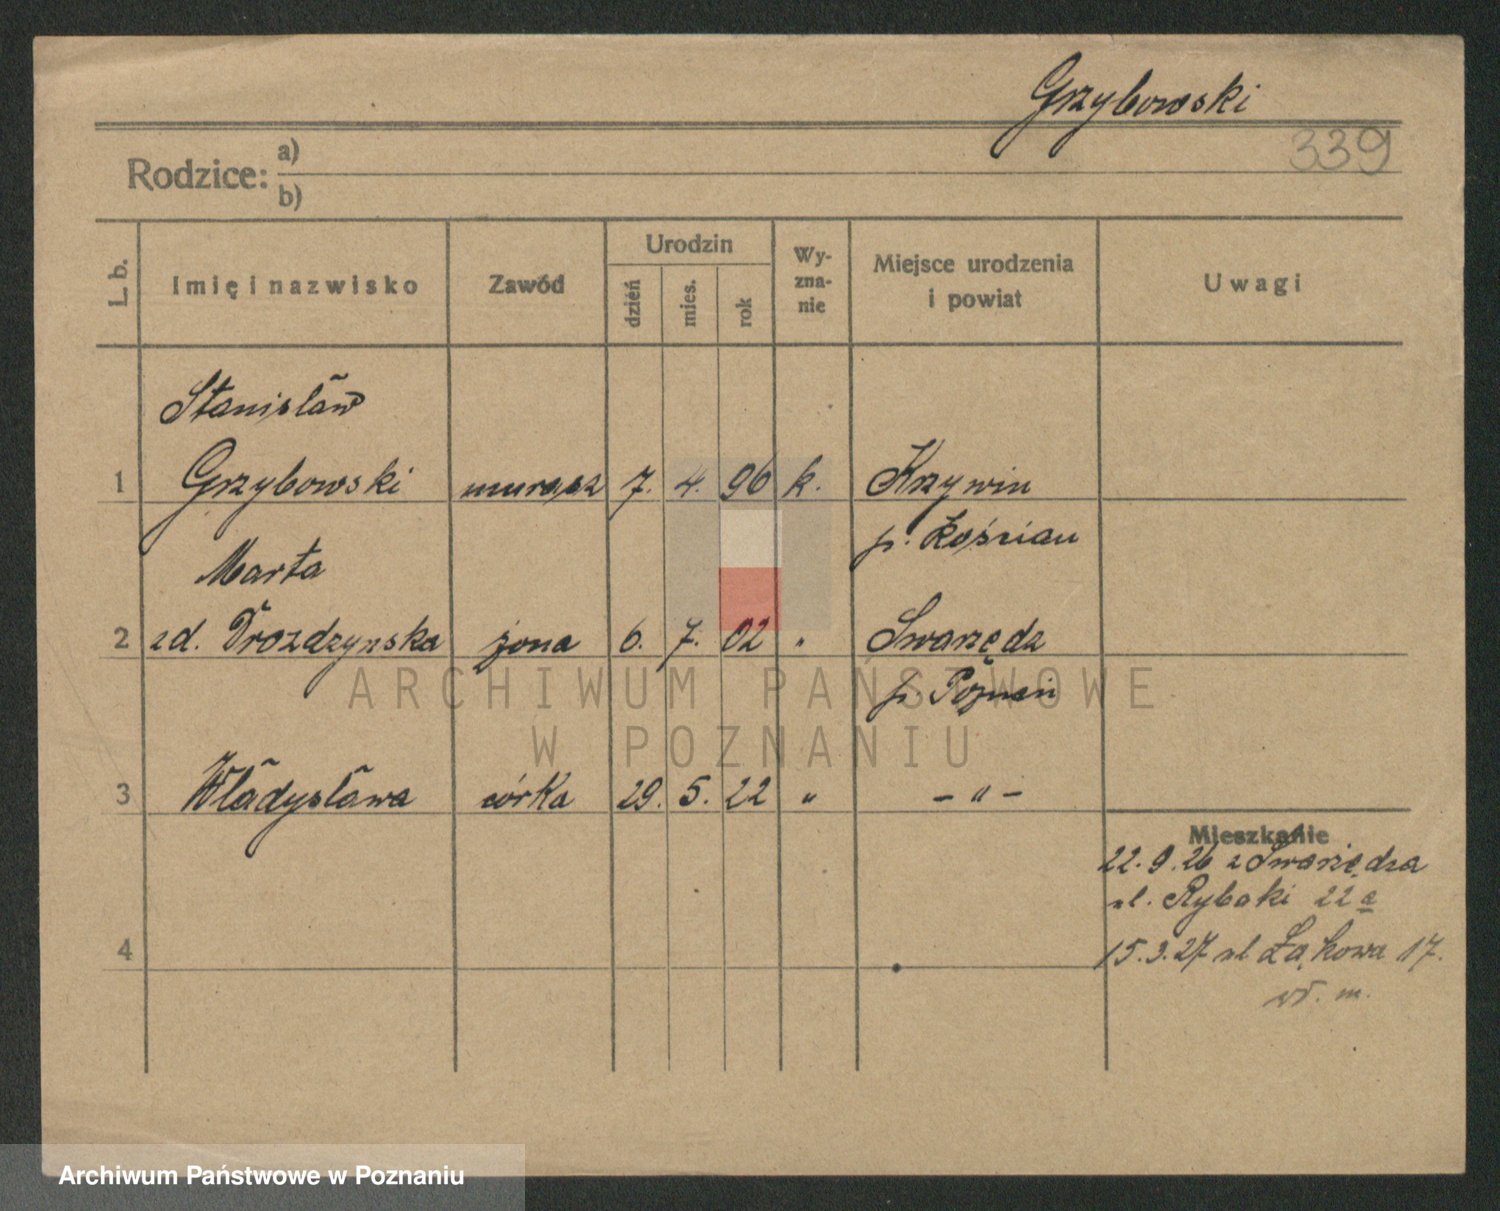 Grzybowski
339
Rodzice: a)
b)
L. b.
Imię i nazwisko
Zawód
Urodzin
dzień
mies.
rok
Wy-
zna-
nie
Miejsce urodzenia
i powiat
Uwagi
Stanisław
1 Grzybowski murarz 7. 4. 96 k. Krzywin
p. Kościan
Marta
2 zd. Drozdzynska żona 6. 7. 02 " Swarzędz
p. Poznań
3 Władysława córka 29. 5. 22 " - " -
Mieszkanie
22.9.26 z Swarzędza
ul. Rybaki 22a
4
15.3.27 ul Łąkowa 17.
ARCHIWUM PAŃSTWOWE
W POZNANIU
Archiwum Państwowe w Poznaniu